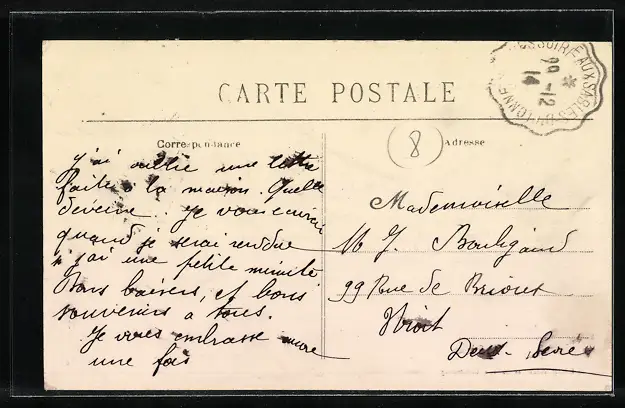 CARTE POSTALE
Correspondance
Adresse
8
29-12
14
J'ai oublié une lettre
faite à la maison. Quelle
déveine. Je vous écrirai
quand je serai rendue
si j'ai une petite minute
Bons baisers, et bons
souvenirs à tous.
Je vous embrasse encore
une fois
Mademoiselle
M J. Bouligand
99 Rue de Brioux
Niort
Deux-Sèvres